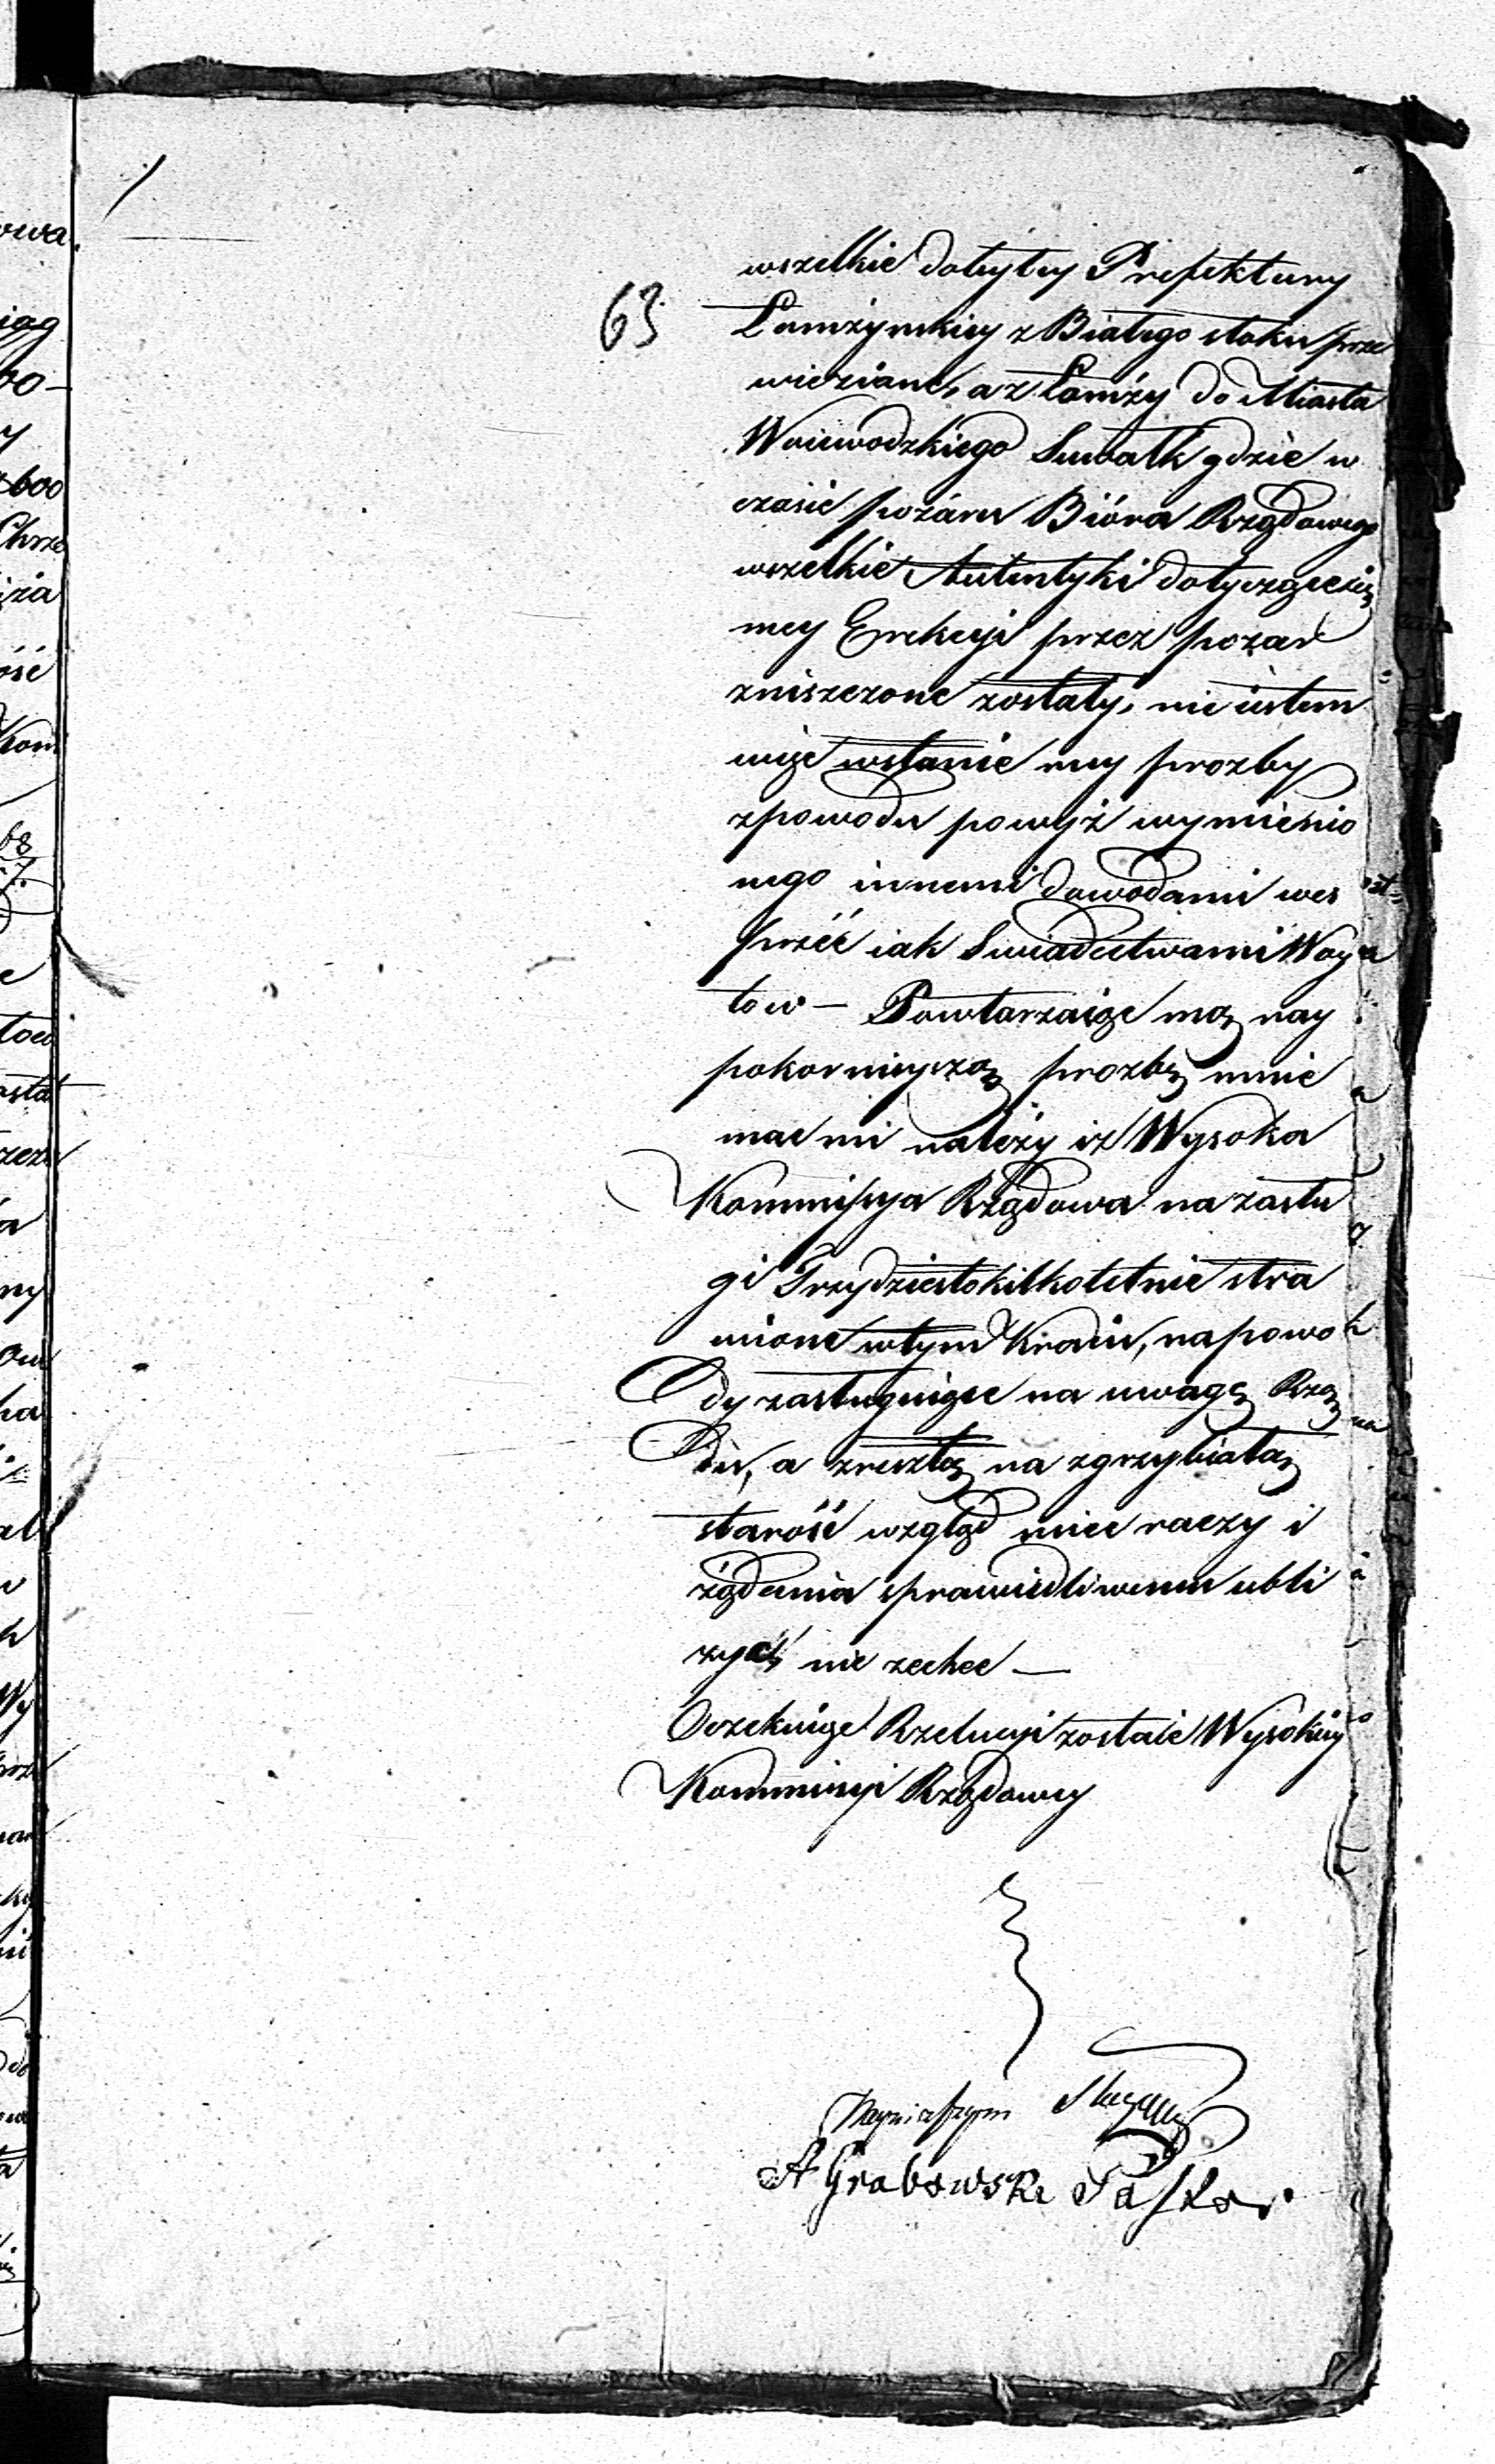 63
wszelkie dotyltey Prefektury
Łomżyńskiey z Białego stoku prze
wieziane, a z Łomży do Miasta
Woiewodzkiego Suwałk gdzie w
czasie pożaru Bióra Rządowego
wszelkie Autentyki dotyczące się
mey Erekcyi przez pozar
zniszczone zostały, nie iestem
więc wstanie mey prozby
zpowodu powyż wymienio
nego innemi dowodami wes
przéć iak Swiadectwami Woy
tow — Powtarzaiąc mą nay
pokornieyszą prozbę mnie
mac mi należy iż Wysoka
Kommissya Rządowa na zasłu
gi Trzydziestokilkoletnie stra
wione wtym Kraiu, na powo
dy zasługuiące na uwagę Rzą
du, a zresztą na zgrzybiałą
starość wzgląd miec raczy i
żądania sprawiedliwemu ubli
zyć nie zechce —
Oczekuiąc Rzelucyi zostaie Wysokiey
Kommissyi Rządowey
Nayniższym Sługą
A Grabowski Pastor